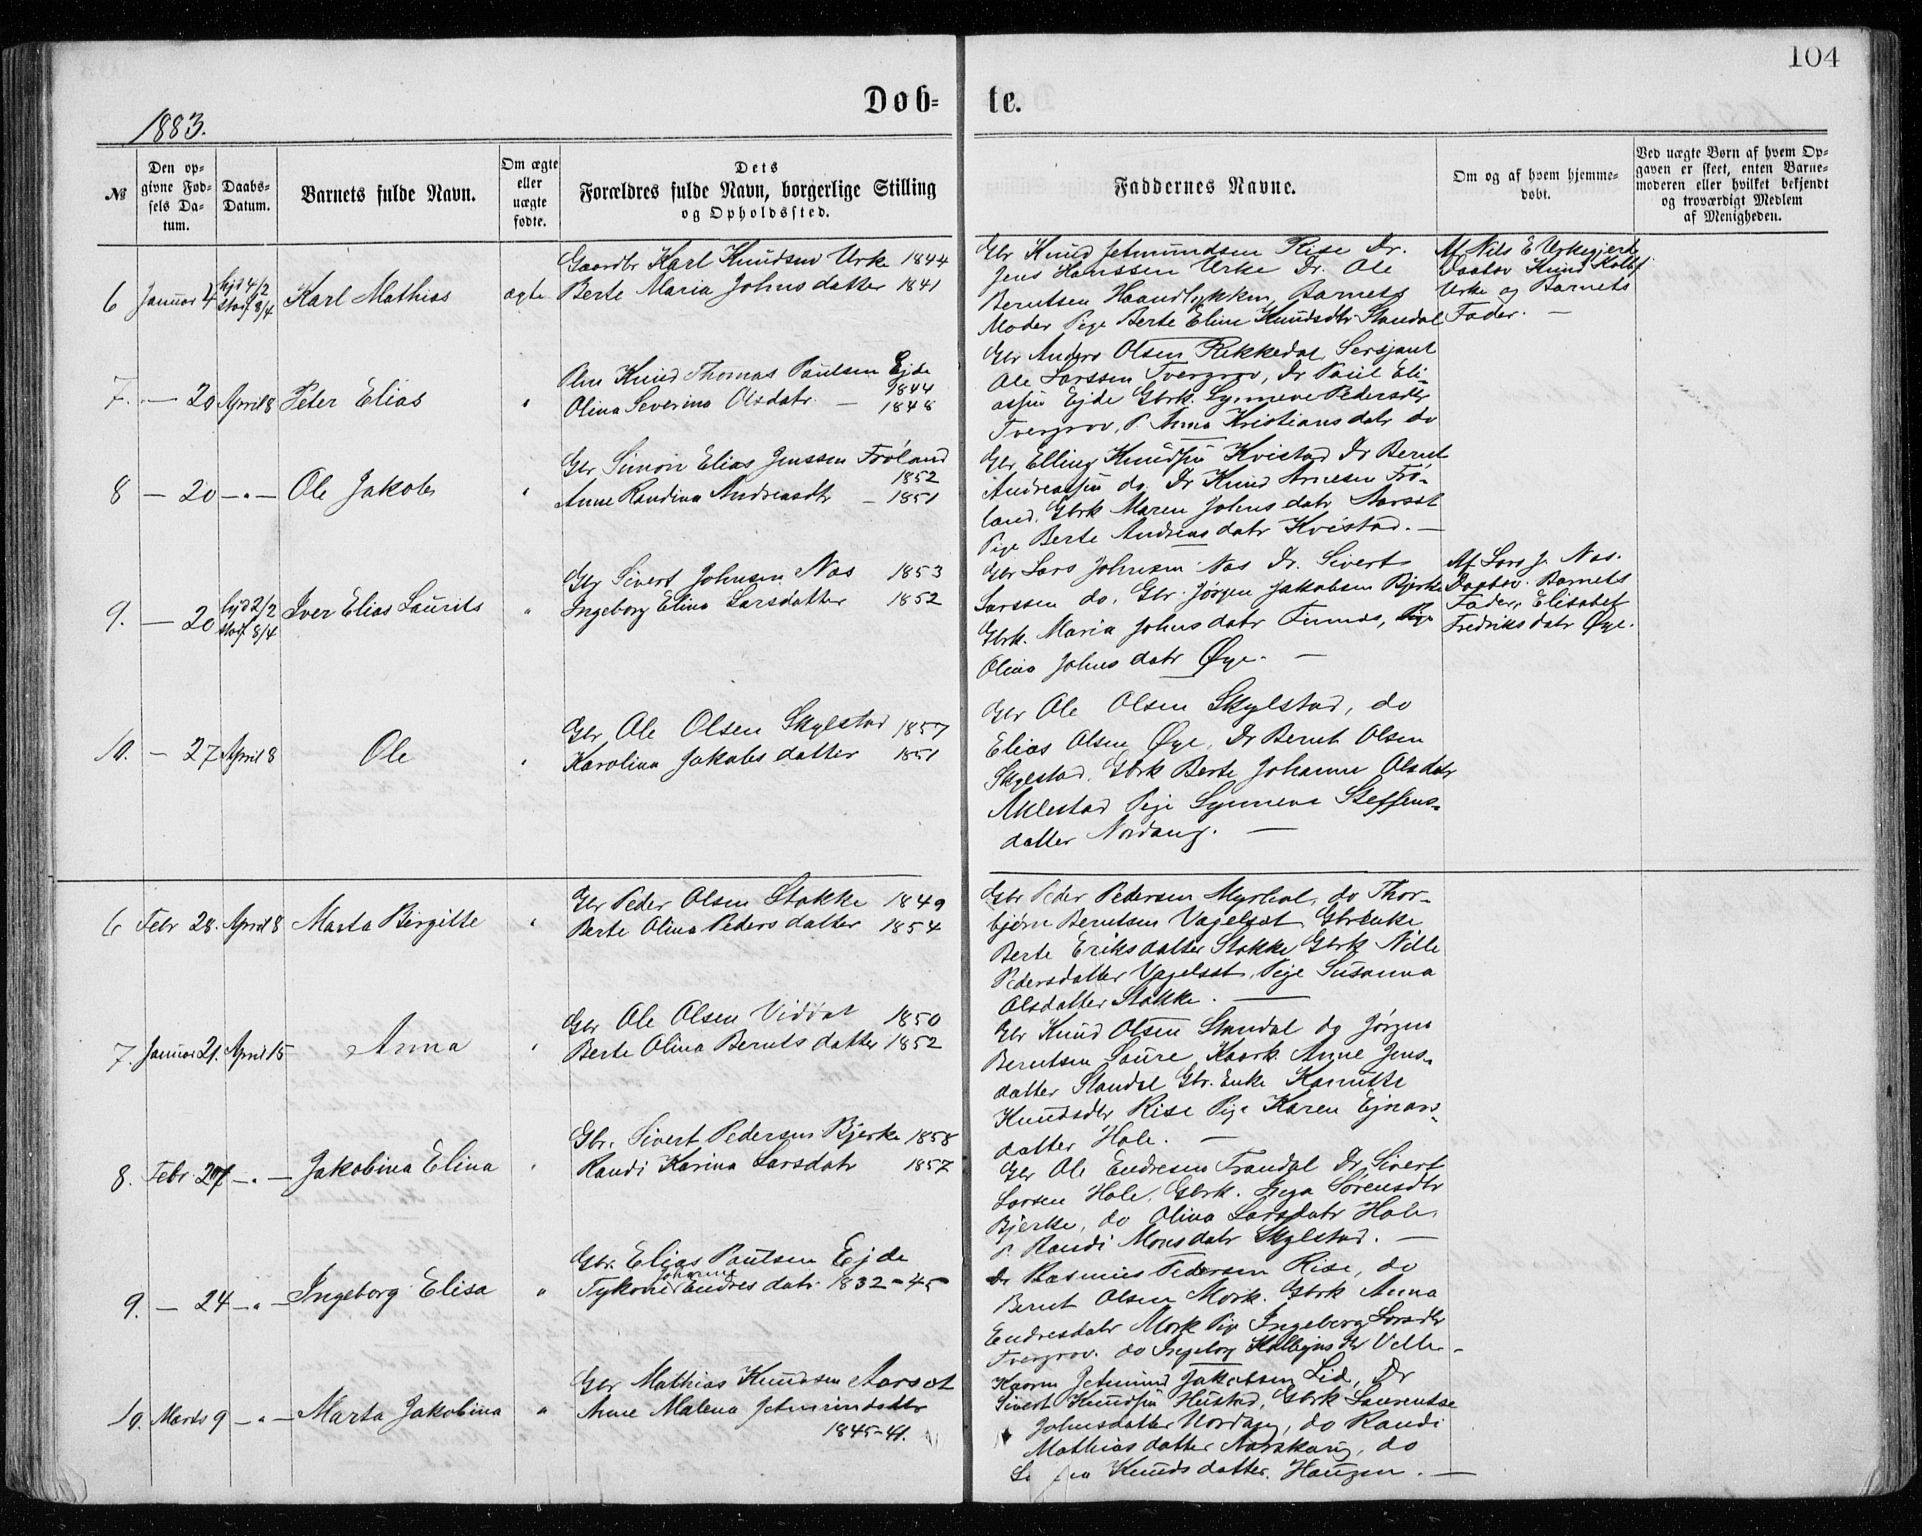 104
Dob- te.
1883.
№
Den op-
givne Fød-
sels Da-
tum.
Daabs-
Datum.
Barnets fulde Navn.
Om ægte
eller
uægte
fødte.
Dets
Forældres fulde Navn, borgerlige Stilling
og Opholdssted.
Faddernes Navne.
Om og af hvem hjemme-
døbt.
Ved uægte Børn af hvem Op-
gaven er skeet, enten Barne-
moderen eller hvilket bekjendt
og troværdigt Medlem
af Menigheden.
6 Januar 4 hjd 4/2 Stadf 8/4 Karl Mathias ægte
Gaardbr Karl Knudsen Urke 1844
Berte Maria Johnsdatter 1841
Gbr Knud Jetmundsen Rise Dr.
Jens Hanssen Urke Dr. Ole
Berntsen Haandlykken, Barnets
Moder Pige Berte Eline Knudsdtr Standal
Af Nils E Urkegjerde
Daabov Knud Kolb
Urke og Barnets
Fader. —
7. — 20 April 8 Peter Elias "
Knud Thomas Paulsen Ejde
1844
Olina Severina Olsdatr. — 1848
Gbr Anders Olsen Rekkedal, Sersjant
Ole Larssen Tvergrov, Dr Paul Eli-
assen Ejde Gbrk. Synneve Pedersdtr
Tvergrov, P. Anna Kristiansdatr do
8 — 20 — " — Ole Jakob "
Gbr Simon Elias Jenssen Frøland
1852
Anne Randina Andreasdtr — 1851
Gbr Elling Knudsen Kvistad Dr Bernt
Andreassen do, Dr Knud Arnesen Frø-
land, Gbrk Maren Johnsdatr Aarset
Pige Berte Andreasdatr Kvistad. —
9. — 20 hjd 2/2 stadf 8/4 Iver Elias Laurits "
Gbr Sivert Johnsen Nos 1853
Ingeborg Elina Larsdatter 1852
Gbr Lars Johnsen Nos Dr. Sivert
Larssen do, Gbr. Jørgen Jakobsen Bjerke
Gbrk. Maria Johnsdatr Finnes, Pige
Olina Johnsdatr Øye. —
Af Lars J. Nos.
Daabov. Barnets
Fader, Elisabet
Fredriksdatr Øye.
10. — 27 April 8 Ole "
Gbr Ole Olsen Skylstad 1857
Karolina Jakobsdatter 1851
Gbr Ole Olsen Skylstad, do
Elias Olsen Øye, Dr Bernt Olsen
Skylstad, Gbrk Berte Johanne Olsdatr
Aklestad Pige Synneva Steffens-
datter Nordang. —
6 Febr 28. April 8 Marta Birgitte "
Gbr Peder Olsen Stokke 1849
Berte Olina Pedersdatter 1854
Gbr Peder Pedersen Myrhol, do Thor-
bjørn Berntsen Vagelset Gbrenke
Berte Eriksdatter Stokke Gbrk Nille
Pedersdatter Vagelset, Pige Susanna
Olsdatter Stokke. —
7. Januar 21. April 15 Anna "
Gbr Ole Olsen Viddal 1850
Berte Olina Berntsdatter 1852
Gbr Knud Olsen Standal do Jørgen
Berntsen Saure Kaark. Anne Jens-
datter Standal Gbr. Enke
Knudsdtr Rise Pige Karen Ejnars-
datter Hole. —
8. Febr 27 — " — Jakobina Elina "
Gbr. Sivert Pedersen Bjerke 1858
Randi Karina Larsdatr 1857
Gbr Ole Endresen Trandal Dr Sivert
Larsen Hole, Gbrk. Inga Sørensdtr
Bjerke, do Olina Larsdatr Hole,
P. Randi Monsdatr Skylstad. —
9. — 24 — " — Ingeborg Elisa "
Gbr. Elias Paulsen Ejde
Johanna
Endresdatr 1832-45
Dr Rasmus Pedersen Rise, do
Bernt Olsen Mork. Gbrk Anna
Endresdatr Mork Pige Ingeborg Larsdtr
Tvergrov. do Ingeborg Velle —
10. Marts 9 — " — Marta Jakobina "
Gbr Mathias Knudsen Aarset
Anne Malena Jetmundsdtr
1845-41.
Kaarm Jetmund Jakobsen Lid, Dr
Sivert Knudsen Hustad, Gbrk Laurentse
Johnsdatter Nordang, do Randi
Mathiasdatter Aarskaug, do
Knudsdatter Haugen. —